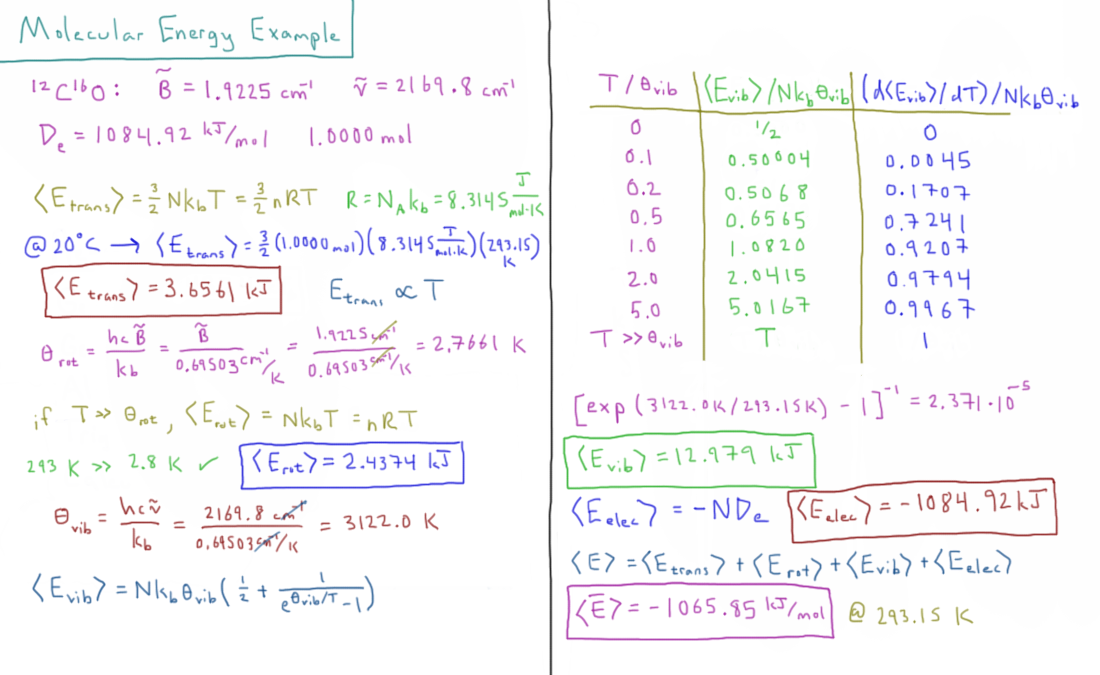 Molecular Energy Example
¹²C¹⁶O: B̃ = 1.9225 cm⁻¹ ṽ = 2169.8 cm⁻¹
Dₑ = 1084.92 kJ/mol 1.0000 mol
⟨E_trans⟩ = 3/2 Nk_bT = 3/2 nRT R = N_A k_b = 8.3145 J/mol·K
@ 20°C → ⟨E_trans⟩ = 3/2 (1.0000 mol)(8.3145 J/mol·K)(293.15) K
⟨E_trans⟩ = 3.6561 kJ E_trans ∝ T
θ_rot = hcB̃/k_b = B̃/0.69503 cm⁻¹/K = 1.9225 cm⁻¹/0.69503 cm⁻¹/K = 2.7661 K
if T >> θ_rot, ⟨E_rot⟩ = Nk_bT = nRT
293 K >> 2.8 K ✓ ⟨E_rot⟩ = 2.4374 kJ
θ_vib = hcṽ/k_b = 2169.8 cm⁻¹/0.69503 cm⁻¹/K = 3122.0 K
⟨E_vib⟩ = Nk_bθ_vib(1/2 + 1/(e^(θ_vib/T) - 1))
T/θ_vib ⟨E_vib⟩/Nk_bθ_vib (d⟨E_vib⟩/dT)/Nk_bθ_vib
0 1/2 0
0.1 0.50004 0.0045
0.2 0.5068 0.1707
0.5 0.6565 0.7241
1.0 1.0820 0.9207
2.0 2.0415 0.9794
5.0 5.0167 0.9967
T >> θ_vib T 1
[exp(3122.0K/293.15K) - 1]⁻¹ = 2.371·10⁻⁵
⟨E_vib⟩ = 12.979 kJ
⟨E_elec⟩ = -NDₑ ⟨E_elec⟩ = -1084.92 kJ
⟨E⟩ = ⟨E_trans⟩ + ⟨E_rot⟩ + ⟨E_vib⟩ + ⟨E_elec⟩
⟨E̅⟩ = -1065.85 kJ/mol @ 293.15 K